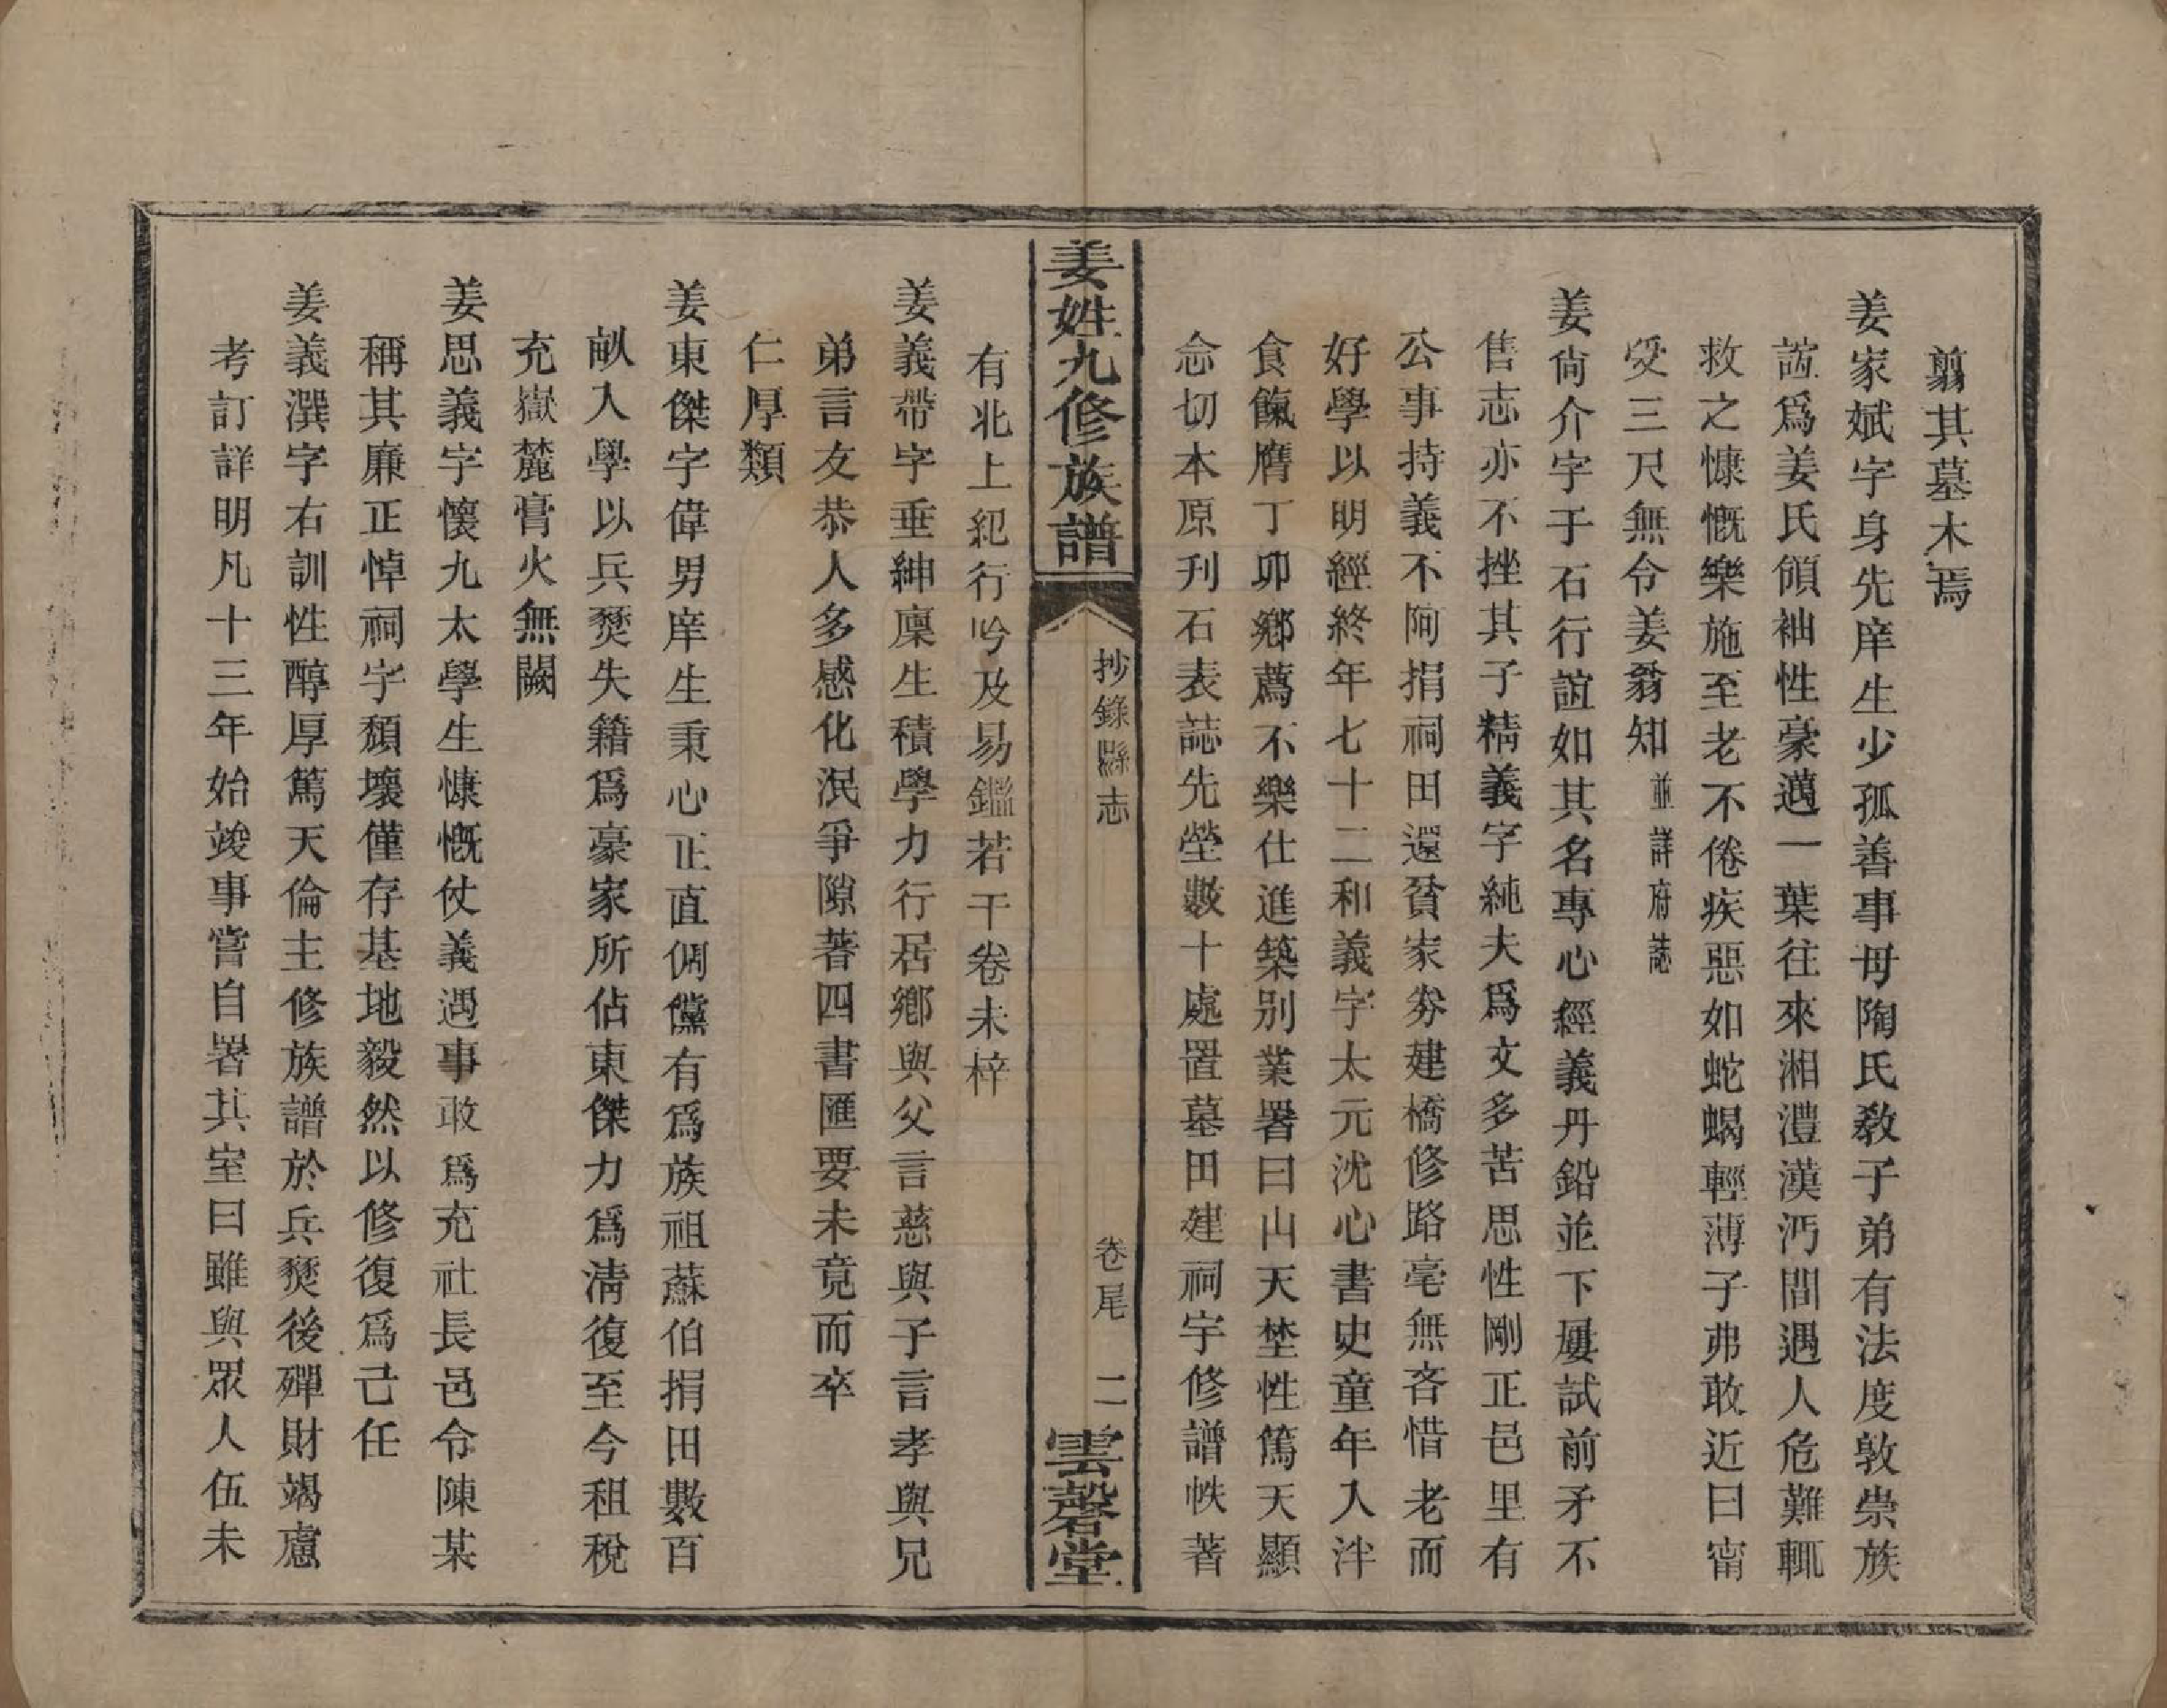 翦其墓木焉
姜家斌字身先庠生少孤善事母陶氏教子弟有法度敦崇族
誼爲姜氏領袖性豪邁一葉往來湘澧漢沔間遇人危難輒
救之慷慨樂施至老不倦疾惡如蛇蝎輕薄子弗敢近曰甯
受三尺無令姜翁知並詳府誌
姜尙介字于石行誼如其名專心經義丹鉛並下屢試前矛不
售志亦不挫其子精義字純夫爲文多苦思性剛正邑里有
公事持義不阿捐祠田還貧家劵建橋修路毫無吝惜老而
好學以明經終年七十二和義字太元沈心書史童年入泮
食餼膺丁卯鄉薦不樂仕進築別業署曰山天埜性篤天顯
念切本原刋石表誌先塋數十處置墓田建祠宇修譜帙著
姜姓九修族譜
抄錄縣志
卷尾
二
雲磬堂
有北上紀行吟及易鑑若干卷未梓
姜義帶字垂紳廩生積學力行居鄉與父言慈與子言孝與兄
弟言友恭人多感化泯爭隙著四書匯要未竟而卒
仁厚類
姜東傑字偉男庠生秉心正直倜儻有爲族祖蘇伯捐田數百
畝入學以兵燹失籍爲豪家所佔東傑力爲淸復至今租稅
充嶽麓膏火無闕
姜思義字懷九太學生慷慨仗義遇事敢爲充社長邑令陳某
稱其廉正悼祠宇頹壞僅存基地毅然以修復爲己任
姜義潠字右訓性醇厚篤天倫主修族譜於兵燹後殫財竭慮
考訂詳明凡十三年始竣事嘗自署其室曰雖與眾人伍未